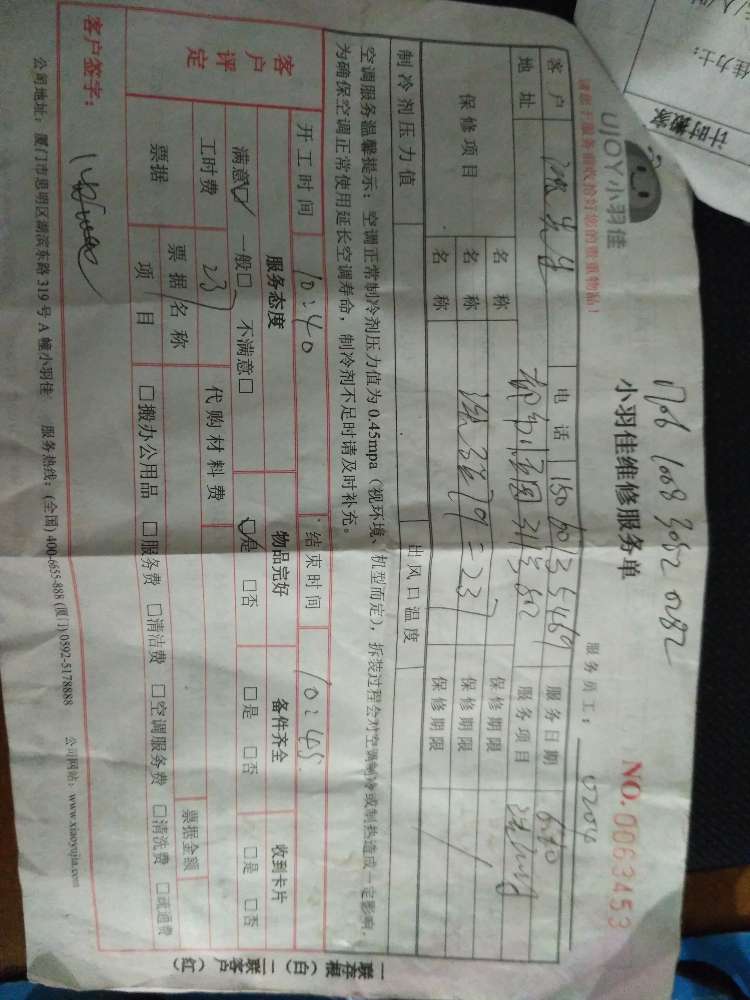 计时搬家
佳力士:
1706 1008 3082 0282
UJOY小羽佳
小羽佳维修服务单
NO.0063453
请您于服务前收拾好您的贵重物品!
服务员工: 0204
客户 先生 电话 服务日期 6.30
地址 服务项目
保修项目 名称 保修期限
名称 保修期限
名称 保修期限
制冷剂压力值 出风口温度
空调服务温馨提示:空调正常制冷剂压力值为0.45mpa(视环境、机型而定),拆装过程会对空调制冷或制热造成一定影响,
为确保空调正常使用延长空调寿命,制冷剂不足时请及时补充。
开工时间 10:40 结束时间 10:45
客户评定 服务态度 物品完好 备件齐全 收到卡片
满意☑ 一般□ 不满意□ ☑是 □否 □是 □否 □是 □否
工时费 237 代购材料费
票据 票据名称 票据金额
项目 □搬办公用品 □服务费 □清洁费 □空调服务费 □清洗费 □疏通费
客户签字:
公司地址:厦门市思明区湖滨东路319号A幢小羽佳 服务热线:(全国)400-6655-888(厦门)0592-5178888 公司网站:www.xiaoyujia.com
一联存根(白)二联客户(红)